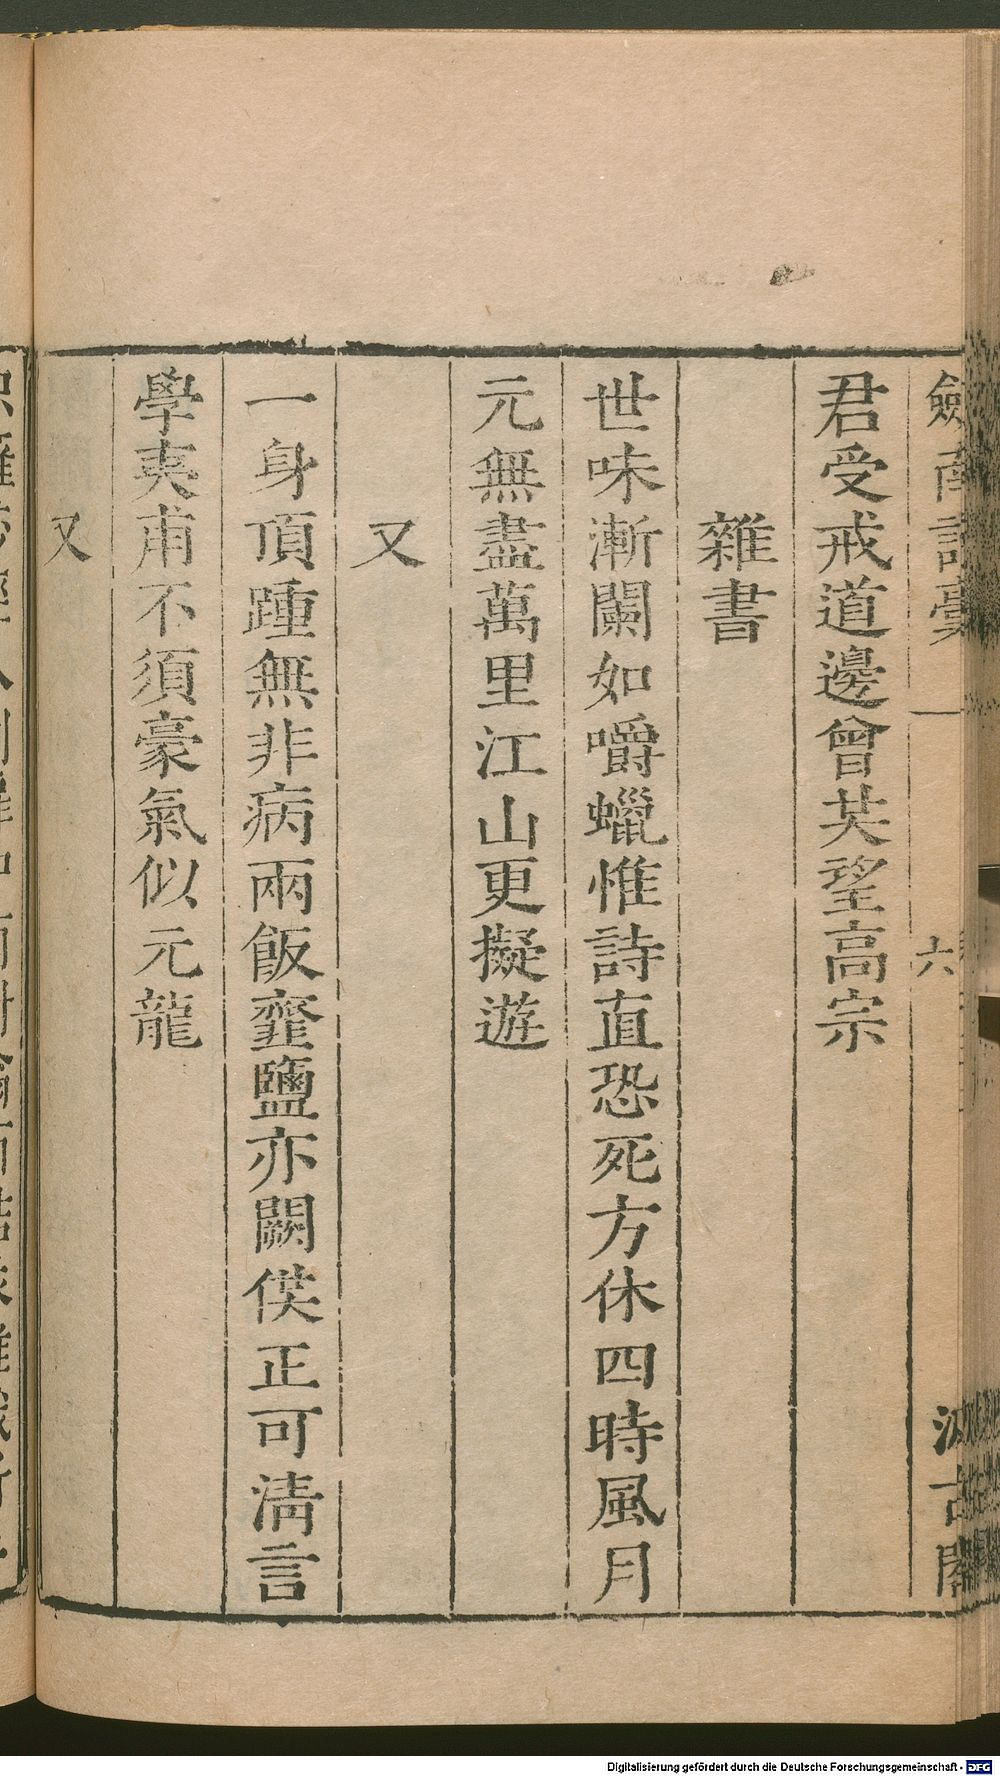 劍南詩稾
六
汲古閣
君受戒道邊曾共望高宗
雜書
世味漸闌如嚼蠟惟詩直恐死方休四時風月
元無盡萬里江山更擬遊
又
一身頂踵無非病兩飯虀鹽亦闕供正可淸言
學夷甫不須豪氣似元龍
又
Digitalisierung gefördert durch die Deutsche Forschungsgemeinschaft - DFG